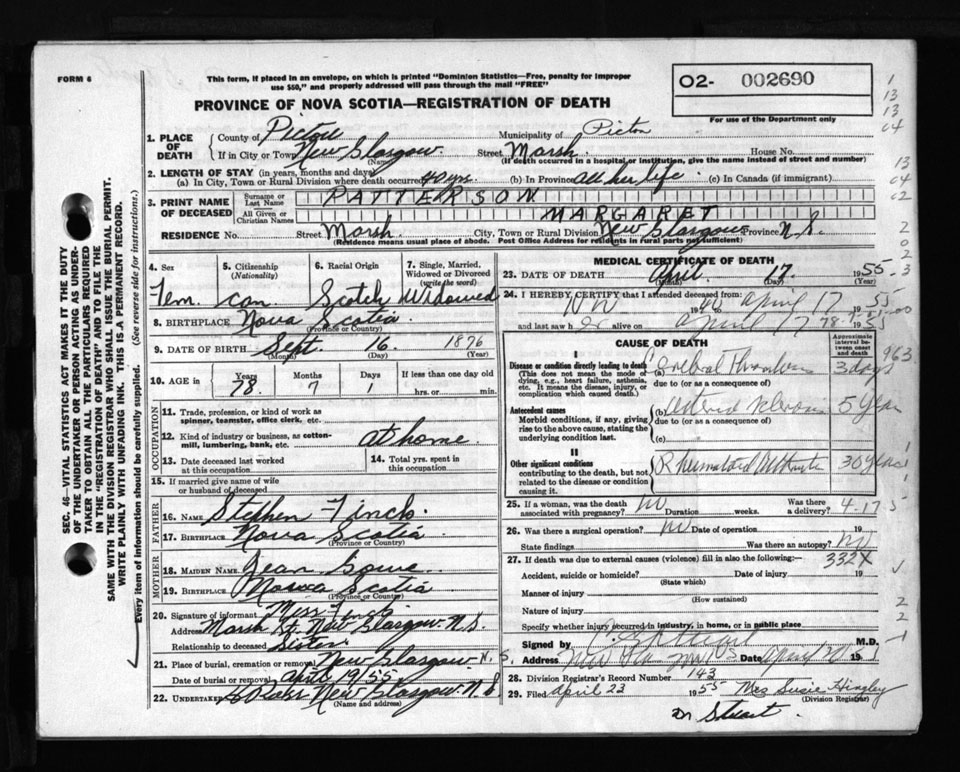 FORM 6
This form, if placed in an envelope, on which is printed "Dominion Statistics—Free, penalty for improper
use $50," and properly addressed will pass through the mail "FREE"
PROVINCE OF NOVA SCOTIA—REGISTRATION OF DEATH
O2- 002690
For use of the Department only
1. PLACE OF DEATH
County of Pictou Municipality of Pictou
If in City or Town New Glasgow. Street Marsh. House No.
(Name) (If death occurred in a hospital or institution, give the name instead of street and number)
2. LENGTH OF STAY (in years, months and days)
(a) In City, Town or Rural Division where death occurred 40 yrs. (b) In Province All her life. (c) In Canada (if immigrant)
3. PRINT NAME OF DECEASED
Surname or Last Name PATTERSON
All Given or Christian Names MARGARET
RESIDENCE No. Street Marsh. City, Town or Rural Division New Glasgow Province N.S.
(Residence means usual place of abode. Post Office Address for residents in rural parts not sufficient)
4. Sex Fem.
5. Citizenship (Nationality) Can.
6. Racial Origin Scotch
7. Single, Married, Widowed or Divorced (write the word) Widowed
8. BIRTHPLACE Nova Scotia
(Province or Country)
9. DATE OF BIRTH Sept. 16 1876
(Month) (Day) (Year)
10. AGE in Years Months Days If less than one day old
78 7 1 hrs. or min.
OCCUPATION
11. Trade, profession, or kind of work as
spinner, teamster, office clerk, etc.
12. Kind of industry or business, as cotton-
mill, lumbering, bank, etc. at home.
13. Date deceased last worked
at this occupation
14. Total yrs. spent in
this occupation
15. If married give name of wife
or husband of deceased
FATHER
16. Name Stephen Finch.
17. BIRTHPLACE Nova Scotia
(Province or Country)
MOTHER
18. MAIDEN NAME Jean
19. BIRTHPLACE Nova Scotia
(Province or Country)
20. Signature of informant Miss Finch
Address Marsh St. New Glasgow. N.S.
Relationship to deceased Sister.
21. Place of burial, cremation or removal New Glasgow N.S.
Date of burial or removal April 19/55
22. UNDERTAKER New Glasgow. N.S
(Name and address)
MEDICAL CERTIFICATE OF DEATH
23. DATE OF DEATH April. 17. 1955
(Month) (Day) (Year)
24. I HEREBY CERTIFY that I attended deceased from
19 to April 17 55
and last saw her alive on April 17 1955
CAUSE OF DEATH
Approximate interval between onset and death
I
Disease or condition directly leading to death
(This does not mean the mode of
dying, e.g., heart failure, asthenia,
etc. It means the disease, injury, or
complication which caused death.
(a) Cerebral Thrombosis 3 days
due to (or as a consequence of)
Antecedent causes
Morbid conditions, if any, giving
rise to the above cause, stating the
underlying condition last.
(b) 5 years
due to (or as a consequence of)
(c)
II
Other significant conditions
contributing to the death, but not
related to the disease or condition
causing it.
Rheumatoid Arthritis 30 years
25. If a woman, was the death
associated with pregnancy? No Duration weeks. Was there a delivery?
4-17
26. Was there a surgical operation? No Date of operation 19
State findings Was there an autopsy? No
27. If death was due to external causes (violence) fill in also the following:—
332X
Accident, suicide or homicide? Date of injury 19
(State which)
Manner of injury
(How sustained)
Nature of injury
Specify whether injury occurred in industry, in home, or in public place
Signed by M.D.
Address
28. Division Registrar's Record Number 143
29. Filed April 23 1955 Mrs Susie Hingley
(Division Registrar)
Dr Stuart.
SEC. 46—VITAL STATISTICS ACT MAKES IT THE DUTY
OF THE UNDERTAKER OR PERSON ACTING AS UNDER-
TAKER TO OBTAIN ALL THE PARTICULARS REQUIRED
IN THE "REGISTRATION OF DEATH" AND TO FILE THE
SAME WITH THE DIVISION REGISTRAR WHO SHALL ISSUE THE BURIAL PERMIT.
WRITE PLAINLY WITH UNFADING INK. THIS IS A PERMANENT RECORD.
Every item of information should be carefully supplied. (See reverse side for instructions.)